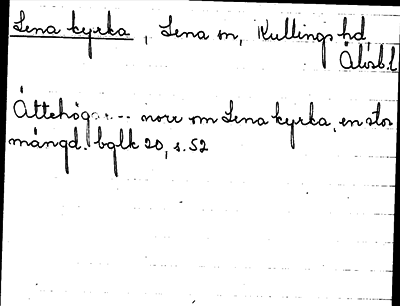 Lena kyrka, Lena sn, Kullings hd
Älvsb.l
Ättehög.... norr om Lena kyrka, en stor
mängd. bglk 20, s.52